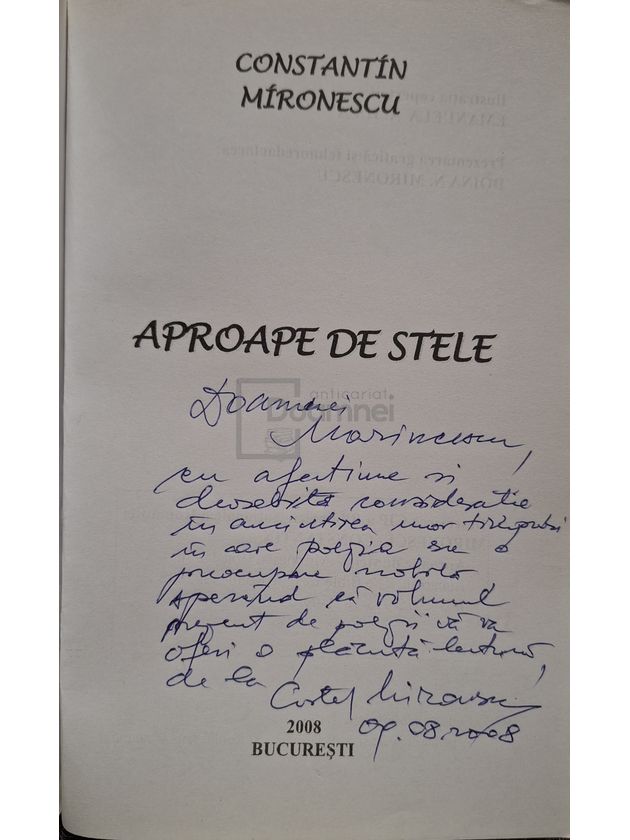 CONSTANTÍN
MÍRONESCU
APROAPE DE STELE
anticariat
Doamnei
Doamnei
Marinescu,
cu afectiune si
deosebita consideratie
în amintirea unor timpuri
în care poezia era o
preocupare nobilă,
sperând că volumul
prezent de poezii vă va
oferi o plăcută lectură,
de la
Costel Mironescu
09.08.2008
2008
BUCUREŞTI